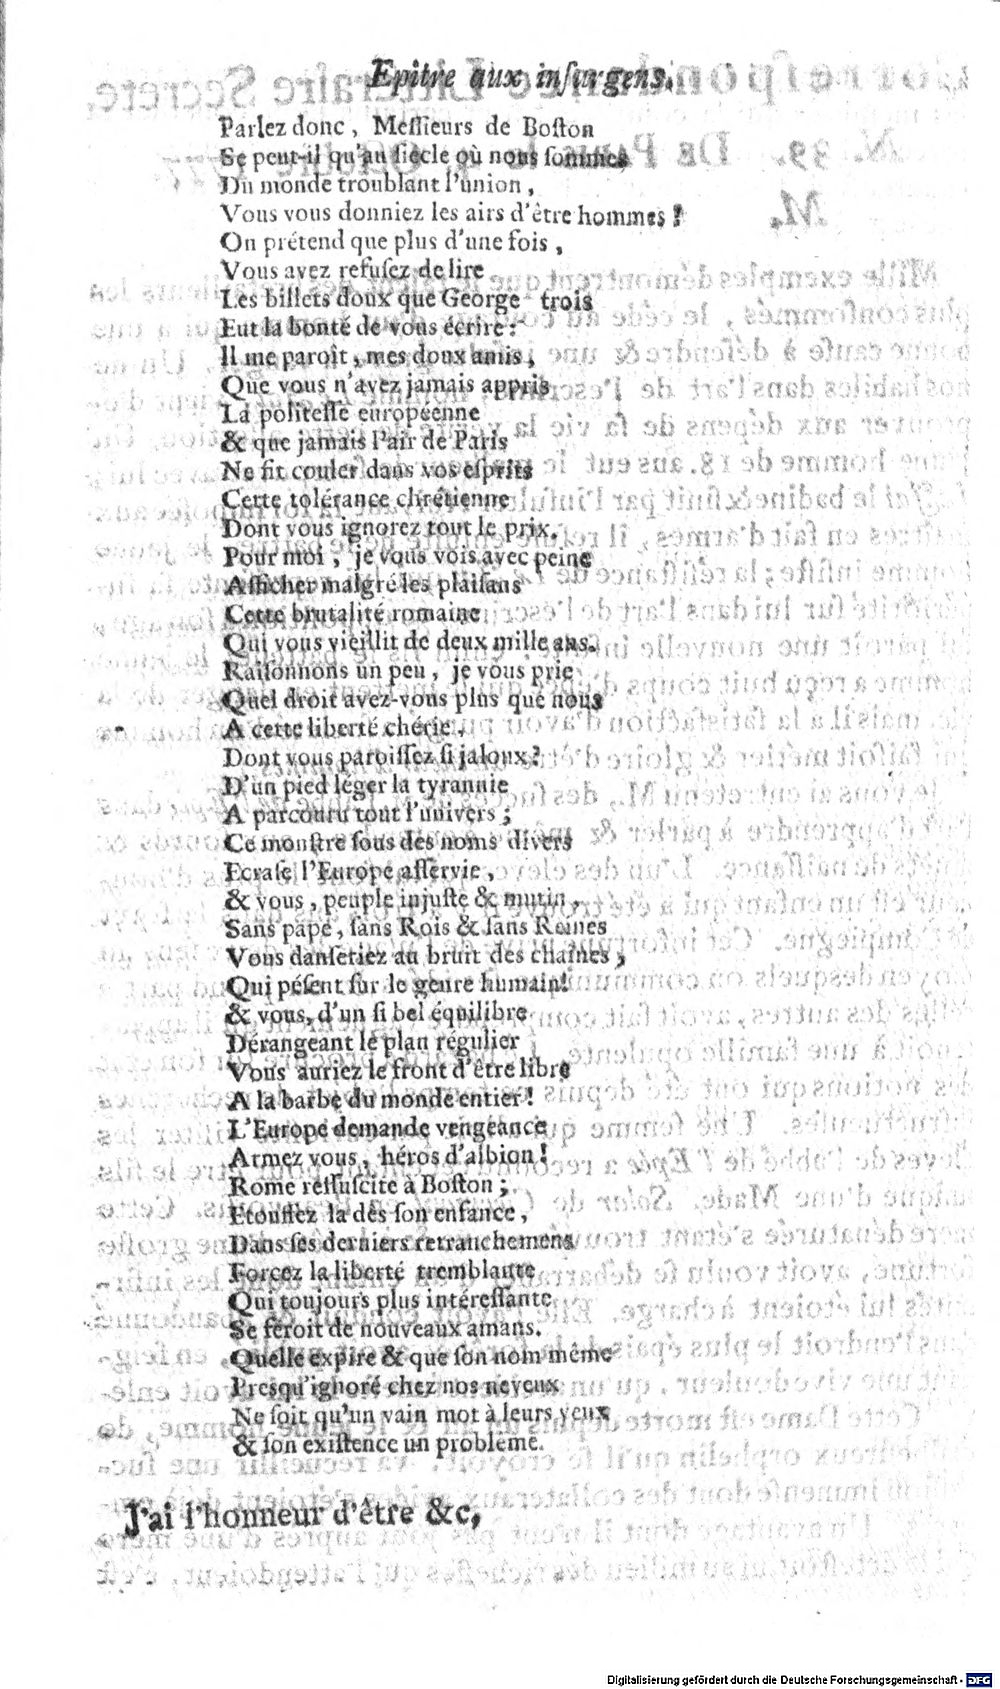 Epitre aux inſurgens.
Parlez donc, Meſſieurs de Boſton
Se peut-il qu'au ſiecle où nous ſommes
Du monde troublant l'union,
Vous vous donniez les airs d'être hommes !
On prétend que plus d'une fois,
Vous avez refuſez de lire
Les billets doux que George trois
Eut la bonté de vous écrire :
Il me paroît, mes doux amis,
Que vous n'avez jamais appris
La politeſſe européenne
& que jamais l'air de Paris
Ne fit couler dans vos eſprits
Cette tolérance chrétienne
Dont vous ignorez tout le prix.
Pour moi, je vous vois avec peine
Afficher malgré les plaiſans
Cette brutalité romaine
Qui vous vieillit de deux mille ans.
Raiſonnons un peu, je vous prie
Quel droit avez-vous plus que nous
A cette liberté chérie,
Dont vous paroiſſez ſi jaloux?
D'un pied léger la tyrannie
A parcouru tout l'univers ;
Ce monſtre ſous des noms divers
Ecraſe l'Europe aſſervie,
& vous, peuple injuſte & mutin,
Sans pape, ſans Rois & ſans Reines
Vous danſeriez au bruit des chaînes,
Qui péſent ſur le genre humain!
& vous, d'un ſi bel équilibre
Dérangeant le plan régulier
Vous auriez le front d'être libre
A la barbe du monde entier !
L'Europe demande vengeance
Armez vous, héros d'albion !
Rome reſſuſcite à Boſton ;
Etouffez la dès ſon enfance,
Dans ſes derniers retranchemens
Forcez la liberté tremblante
Qui toujours plus intéreſſante
Se feroit de nouveaux amans.
Quelle expire & que ſon nom même
Presqu'ignoré chez nos neveux
Ne ſoit qu'un vain mot à leurs yeux
& ſon exiſtence un problême.
J'ai l'honneur d'être &c,
Digitalisierung gefördert durch die Deutsche Forschungsgemeinschaft - DFG